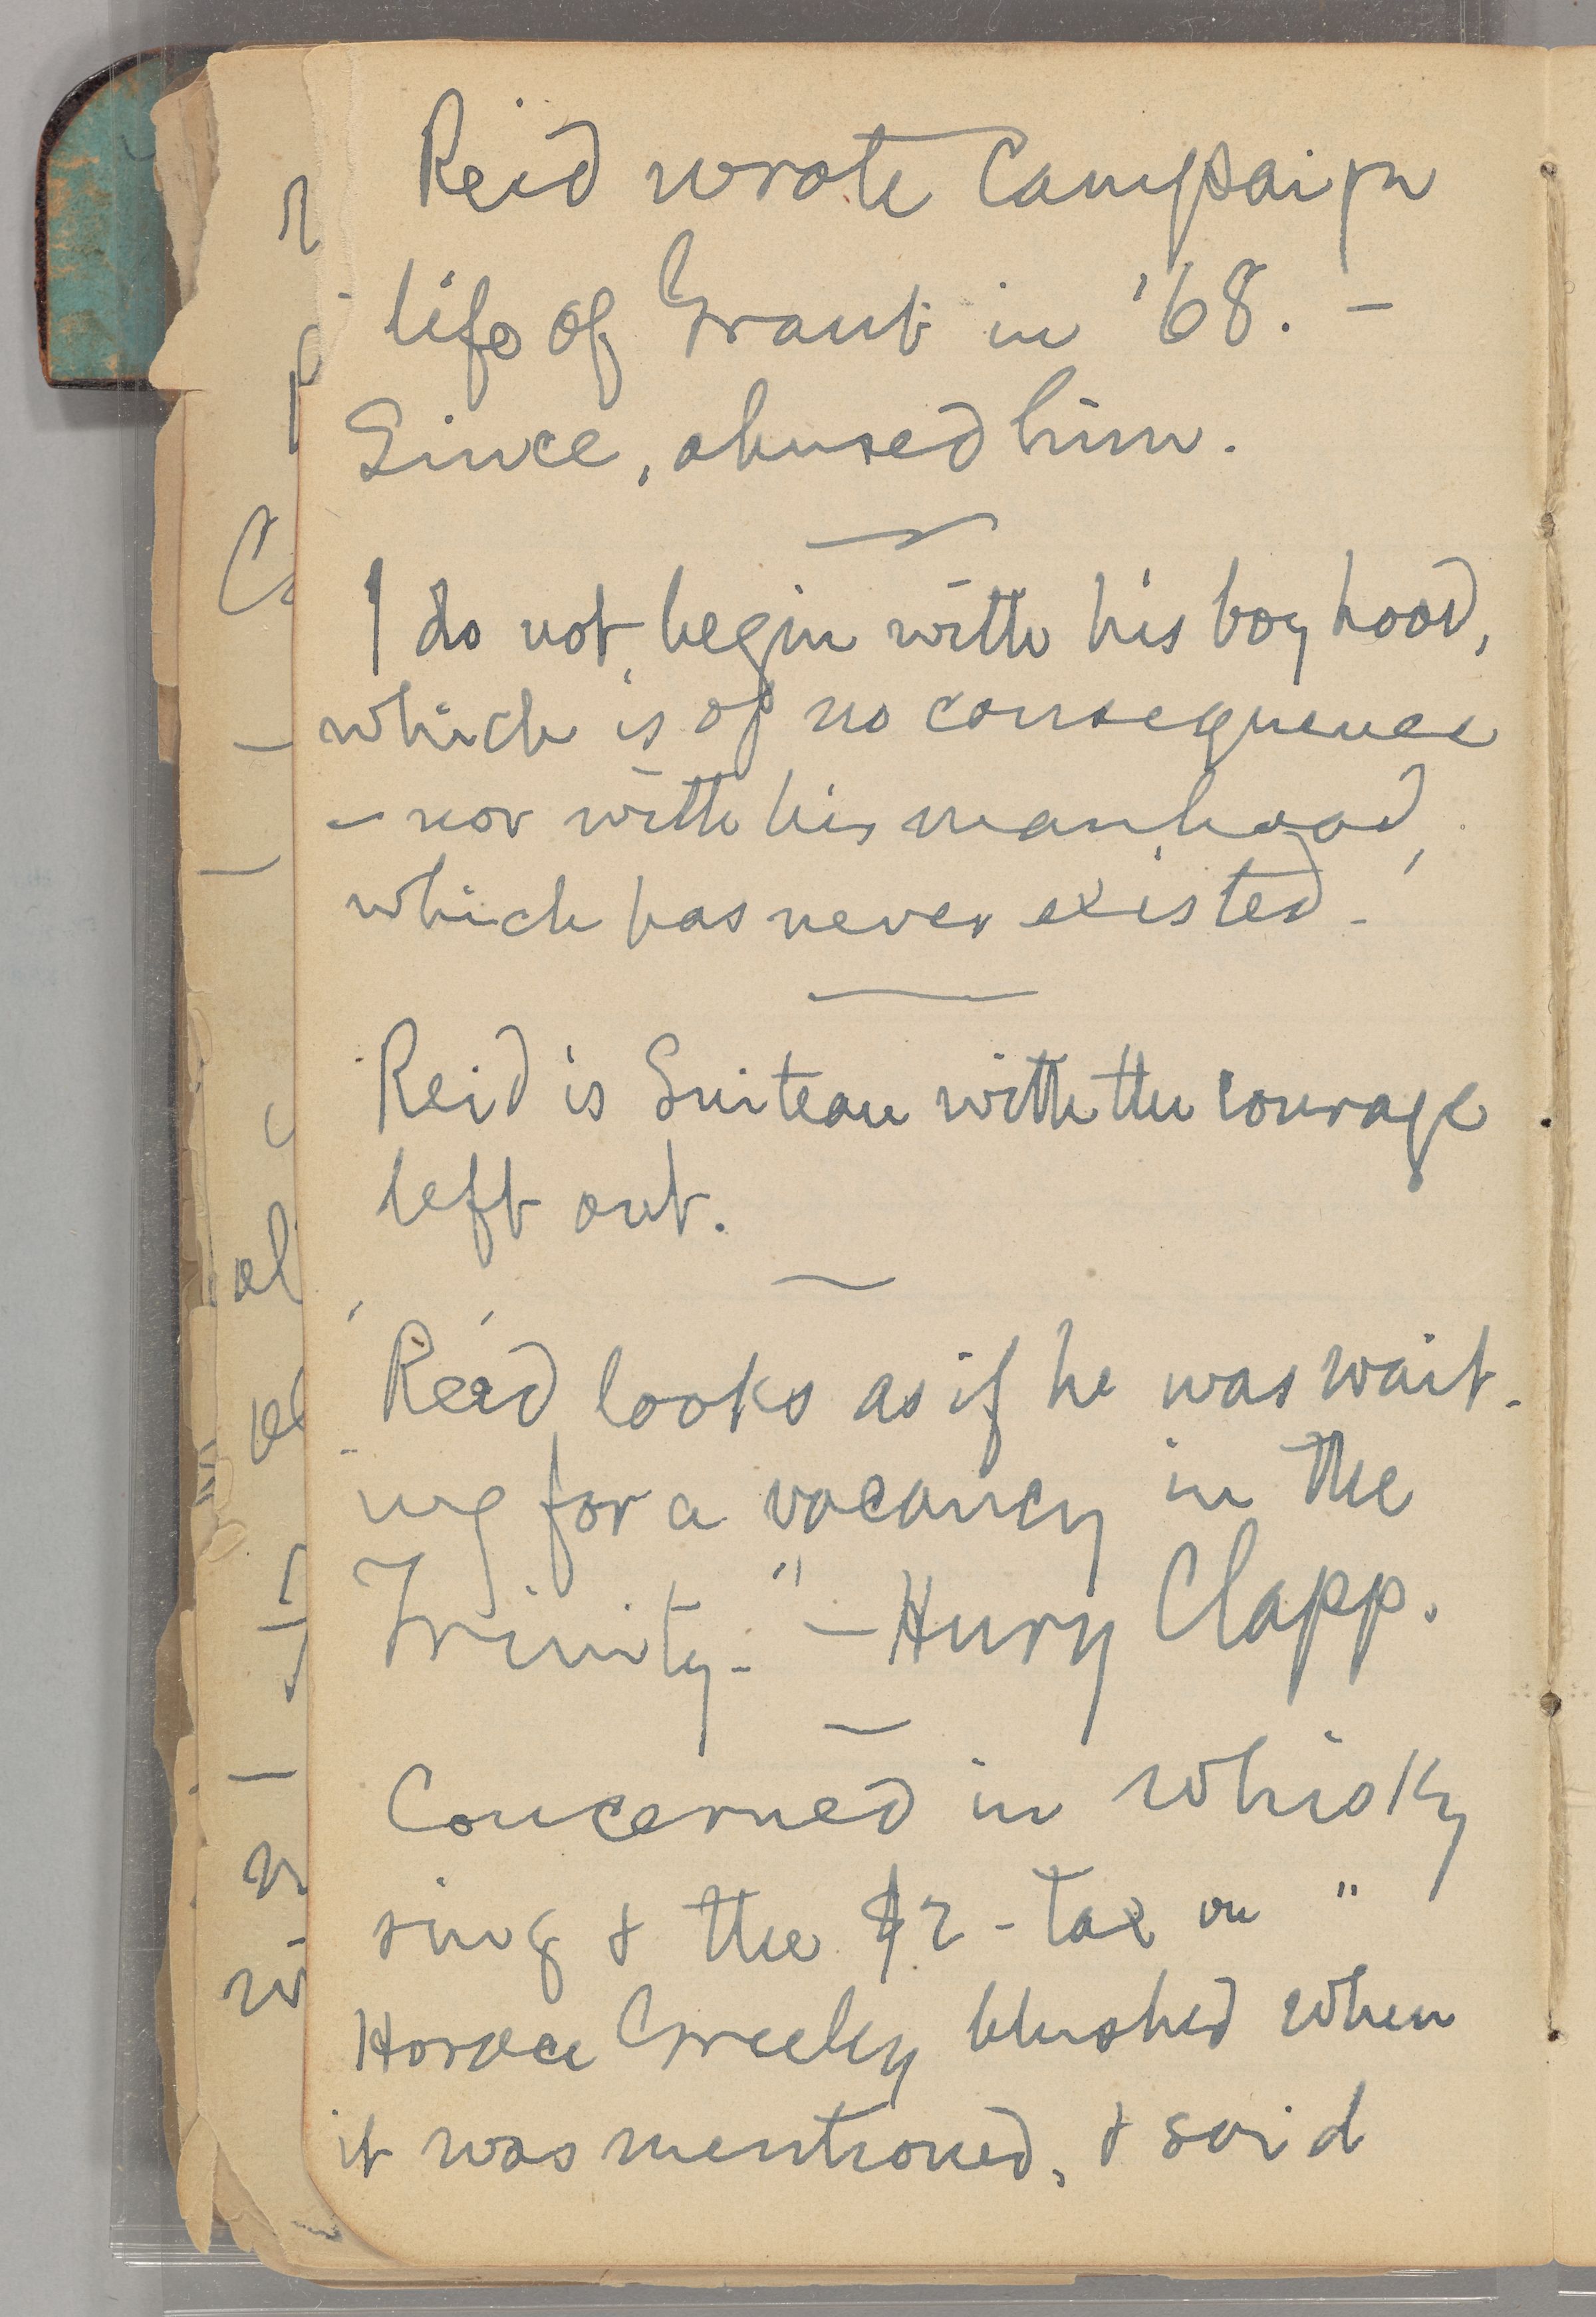 Reid wrote Campaign
life of Grant in '68. —
Since, abused him.
I do not begin with his boyhood,
which is of no consequence
— nor with his manhood,
which has never existed.
Reid is Guiteau with the courage
left out.
"Reid looks as if he was wait-
ing for a vacancy in the
Trinity." — Hury Clapp.
Concerned in whisky
ring & the $2 - tax on "
Horace Greeley blushed when
it was mentioned, & said